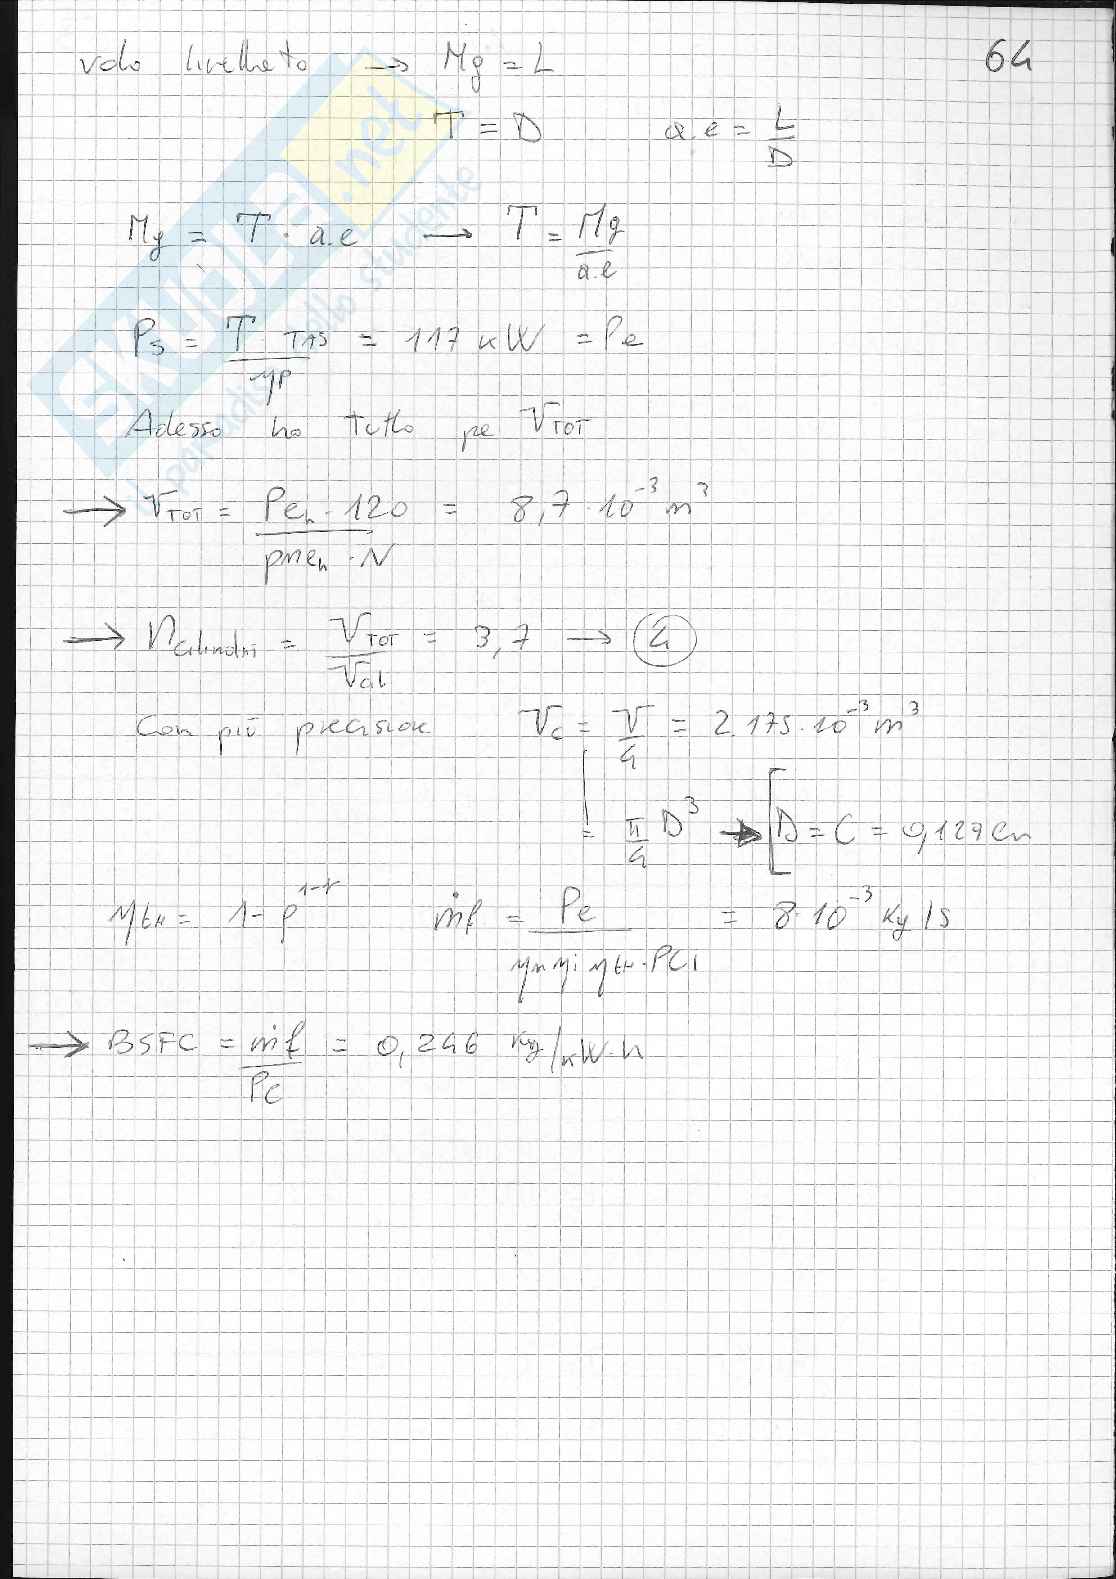 64
volo livellato → Mg = L
T = D a.e = L/D
Mg = T · a.e → T = Mg/a.e
Ps = T · TAS/ηp = 117 kW = Pe
Adesso ho tutto pe VTOT
→ VTOT = Peh · 120/pmeh · N = 8,7 · 10⁻³ m³
→ ncilindri = VTOT/Vcil = 3,7 → 4
Con più precisione Vc = V/4 = 2.175 · 10⁻³ m³
= π/4 D³ → [D = C = 0,129 cm
ηtH = 1 - ρ¹⁻ᵞ ṁf = Pe/ηm ηi ηtH · PCI = 8 · 10⁻³ Kg/s
→ BSFC = ṁf/Pe = 0,246 Kg/kW·h
SKUOLA.net
il paradiso dello studente